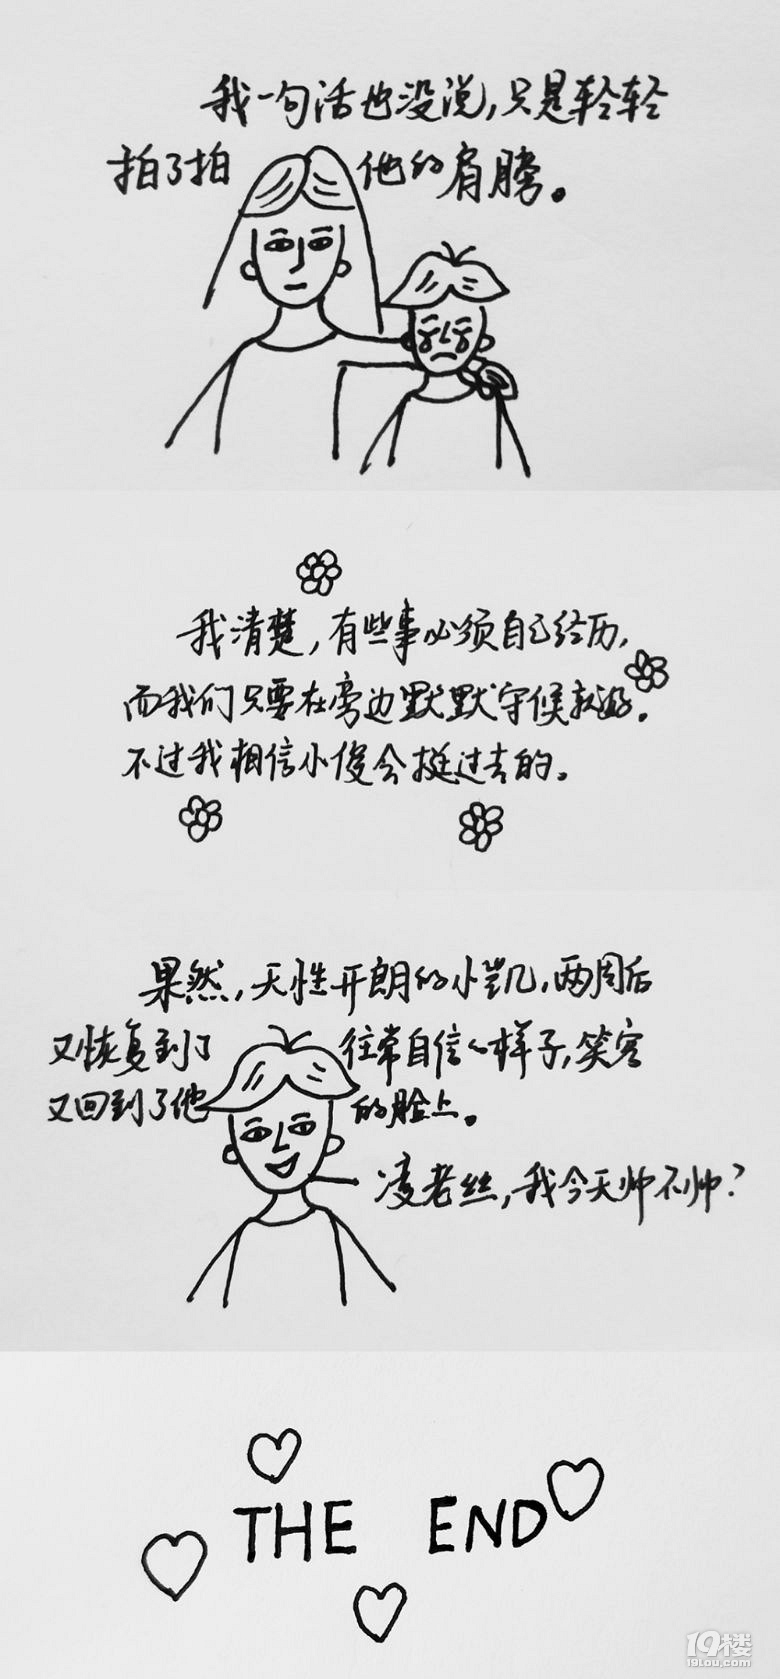 我一句话也没说，只是轻轻
拍了拍他的肩膀。
我清楚，有些事必须自己经历，
而我们只要在旁边默默守候就好。
不过我相信小俊会挺过去的。
果然，天性开朗的小凯，两周后
又恢复到了往常自信的样子，笑容
又回到了他的脸上。
凌老丝，我今天帅不帅？
THE END
19楼
19lou.com